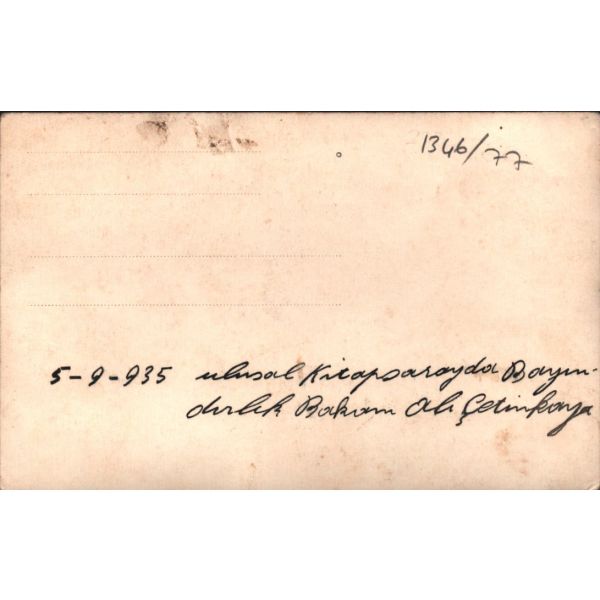 1346/77
5-9-935 ulusal Kitapsarayda Bayın-
dırlık Bakanı Ali Çetinkaya